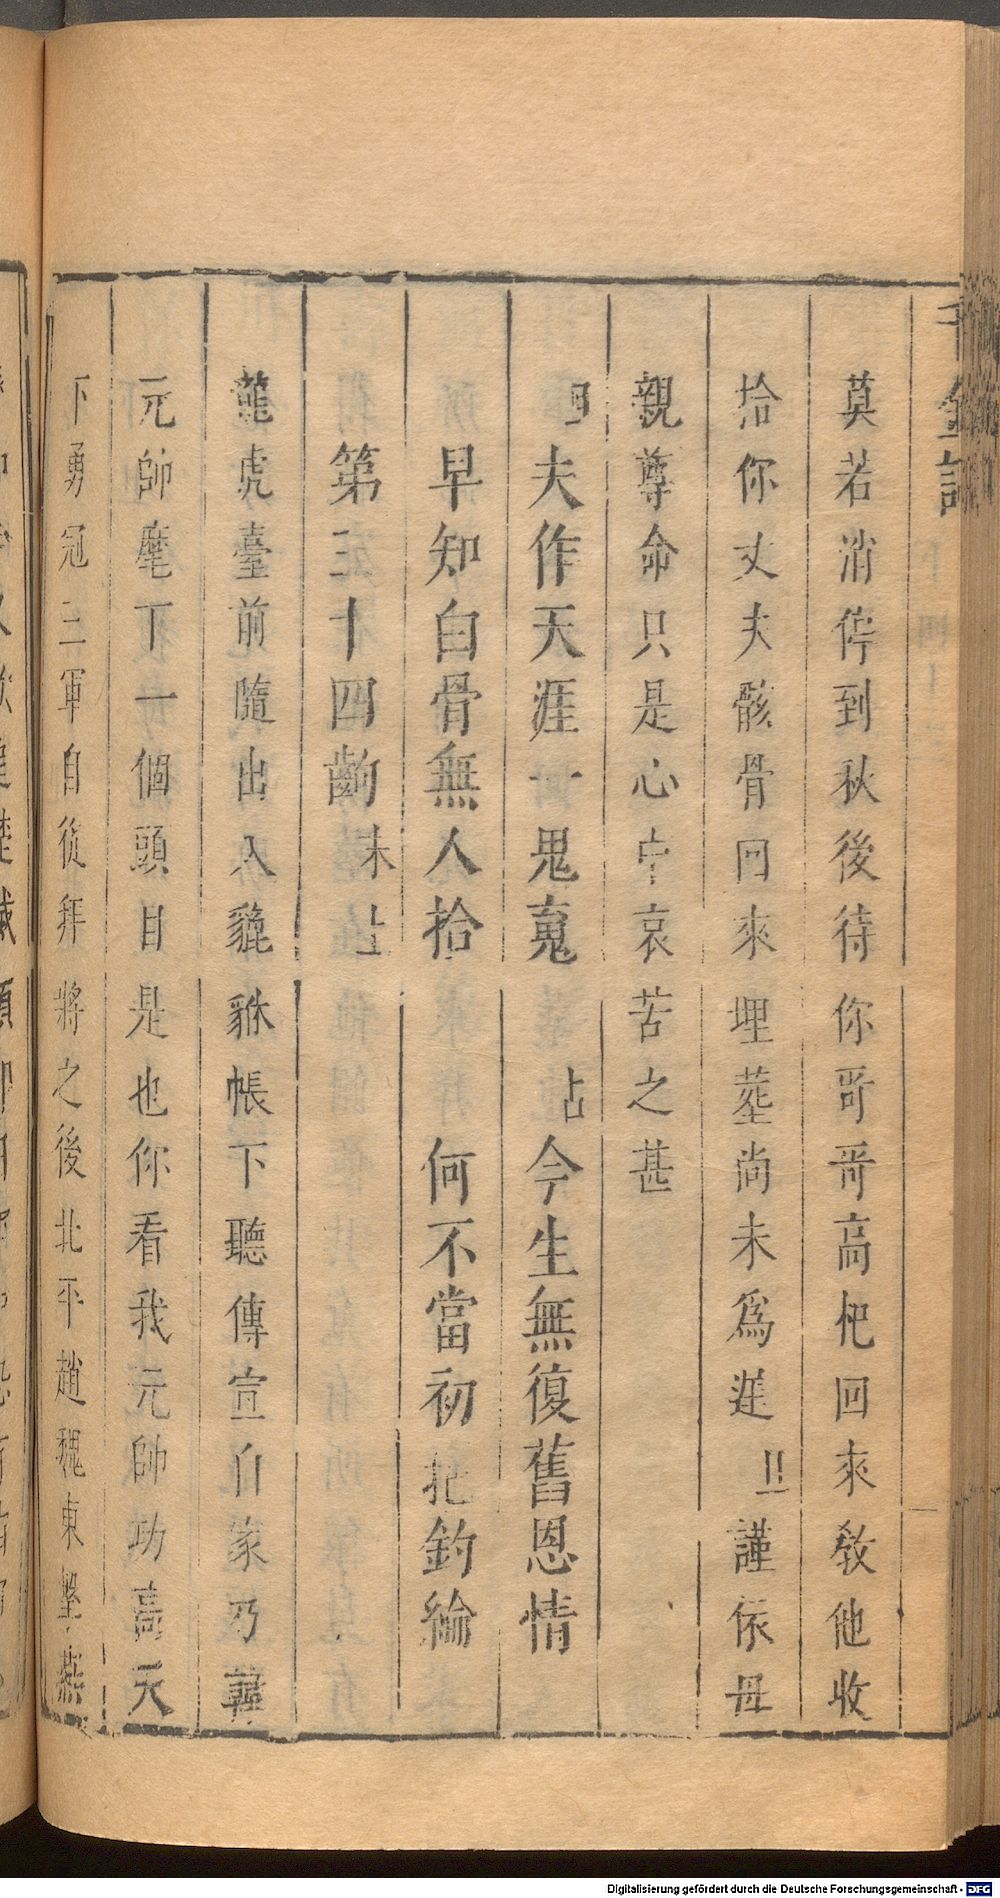 千金記
莫若消停到秋後待你哥哥高杷回來敎他收
拾你丈夫骸骨回來埋塟尚未爲遲 旦 謹依母
親尊命只是心中哀苦之甚
夫作天涯一鬼䰟 占 今生無復舊恩情
早知白骨無人拾 何不當初把釣綸
第三十四齣 末上
龍虎臺前隨出入貔貅帳下聽傳宣自家乃韓
元帥麾下一個頭目是也你看我元帥功高天
下勇冠三軍自從拜將之後北平趙魏東墾燕
Digitalisierung gefördert durch die Deutsche Forschungsgemeinschaft - DFG